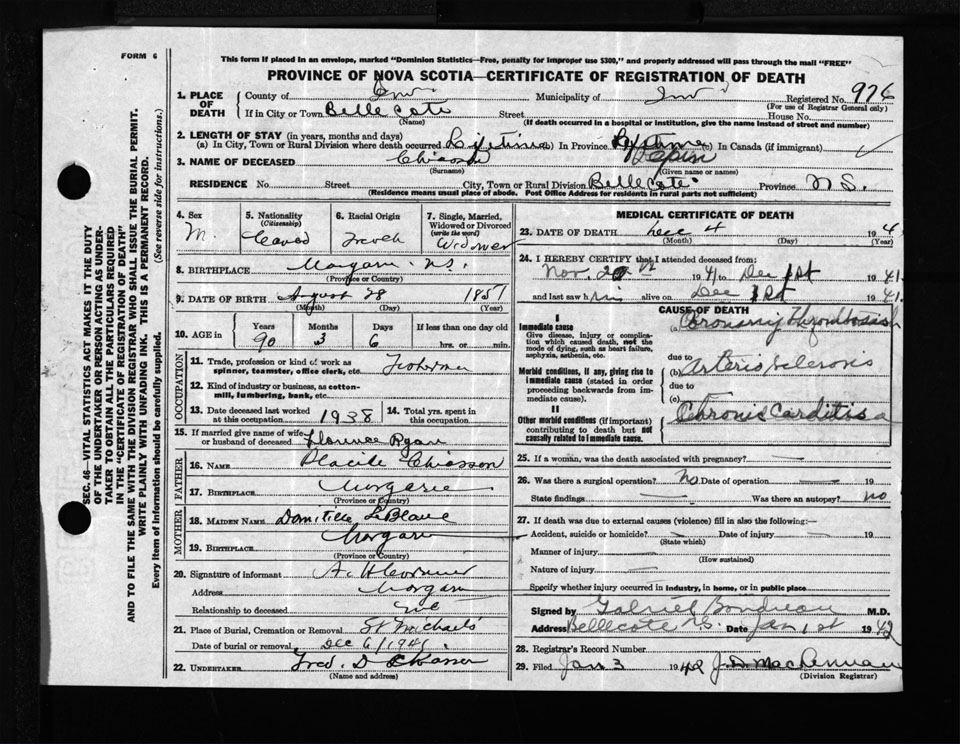 FORM 6
This form if placed in an envelope, marked "Dominion Statistics—Free, penalty for improper use $300," and properly addressed will pass through the mail "FREE"
PROVINCE OF NOVA SCOTIA—CERTIFICATE OF REGISTRATION OF DEATH
1. PLACE OF DEATH
County of Inv. Municipality of Inv. Registered No. 976
(For use of Registrar General only)
If in City or Town Belle Cote Street House No.
(Name) (If death occurred in a hospital or institution, give the name instead of street and number)
2. LENGTH OF STAY (in years, months and days)
(a) In City, Town or Rural Division where death occurred Lifetime (b) In Province Lifetime (c) In Canada (if immigrant)
3. NAME OF DECEASED Chiasson
(Surname) (Given name or names)
RESIDENCE No. Street City, Town or Rural Division Belle Cote Province N S.
(Residence means usual place of abode. Post Office Address for residents in rural parts not sufficient)
4. Sex M.
5. Nationality (Citizenship)
6. Racial Origin French
7. Single, Married, Widowed or Divorced (write the word) Widower
8. BIRTHPLACE Margaree N.S.
(Province or Country)
9. DATE OF BIRTH August 28 1851
(Month) (Day) (Year)
10. AGE IN Years Months Days If less than one day old
90 3 6 hrs. or min.
OCCUPATION
11. Trade, profession or kind of work as spinner, teamster, office clerk, etc. Fisherman
12. Kind of industry or business, as cotton-mill, lumbering, bank, etc.
13. Date deceased last worked at this occupation 1938
14. Total yrs. spent in this occupation
15. If married give name of wife or husband of deceased Florence Ryan
FATHER
16. NAME Placide Chiasson
17. BIRTHPLACE Margaree
(Province or Country)
MOTHER
18. MAIDEN NAME Domitille LeBlanc
19. BIRTHPLACE Margaree
(Province or Country)
20. Signature of informant A. H. Cormier
Address Margaree
Relationship to deceased
21. Place of Burial, Cremation or Removal St Michaels
Date of burial or removal Dec 6/1941
22. UNDERTAKER Fred. D Chiasson
(Name and address)
MEDICAL CERTIFICATE OF DEATH
23. DATE OF DEATH Dec 4 1941
(Month) (Day) (Year)
24. I HEREBY CERTIFY that I attended deceased from:
Nov. 20th 1941 to Dec 1st 1941.
and last saw him alive on Dec 1st 1941.
CAUSE OF DEATH
I
Immediate cause
Give disease, injury or complication which caused death, not the mode of dying, such as heart failure, asphyxia, asthenia, etc.
(a) Coronary Thrombosis
due to
Morbid conditions, if any, giving rise to immediate cause (stated in order proceeding backwards from immediate cause).
(b) Arterio Sclerosis
due to
(c)
II
Other morbid conditions (if important) contributing to death but not causally related to immediate cause.
25. If a woman, was the death associated with pregnancy?
26. Was there a surgical operation? No Date of operation — 19
State findings — Was there an autopsy? no
27. If death was due to external causes (violence) fill in also the following:—
Accident, suicide or homicide? — Date of injury — 19
(State which)
Manner of injury —
(How sustained)
Nature of injury —
Specify whether injury occurred in industry, in home, or in public place
Signed by Gabriel Boudreau M.D.
Address Bellecote N.S. Date Jan 1st 1942
28. Registrar's Record Number
29. Filed Jan 3 1942 J. D. MacLennan
(Division Registrar)
SEC. 46—VITAL STATISTICS ACT MAKES IT THE DUTY
OF THE UNDERTAKER OR PERSON ACTING AS UNDER-
TAKER TO OBTAIN ALL THE PARTICULARS REQUIRED
IN THE "CERTIFICATE OF REGISTRATION OF DEATH"
AND TO FILE THE SAME WITH THE DIVISION REGISTRAR WHO SHALL ISSUE THE BURIAL PERMIT.
WRITE PLAINLY WITH UNFADING INK. THIS IS A PERMANENT RECORD.
Every item of information should be carefully supplied. (See reverse side for instructions.)